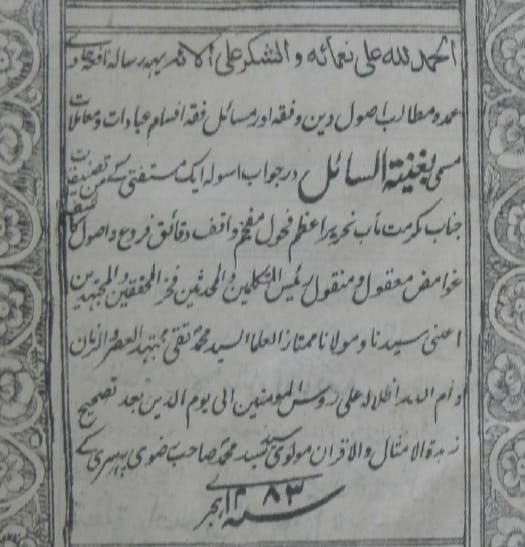 الحمد لله على نعمائه والشكر على آلائه یہہ رسالہ نافعہ حاوی
عمدہ مطالب اصول دین و فقہ اور مسائل فقہ اقسام عبادات و معاملات
مسمی بغنیۃ السائل در جواب اسولہ ایک مستفتی کے من تصنیفات
جناب مکرمت مآب نحریر اعظم فحول مفخم واقف دقائق فروع و اصول کاشف
غوامض معقول و منقول رئیس المتکلمین والمحدثین فخر المحققین والمجتہدین
اعنی سیدنا و مولانا ممتاز العلما السید محمد تقی مجتہد العصر والزمان
دام الله ظلاله على رؤس المومنین الی یوم الدین بعد تصحیح
زبدة الامثال والاقران مولوی سید محمد صاحب رضوی کے
سنہ ۱۲۸۳ ہجری